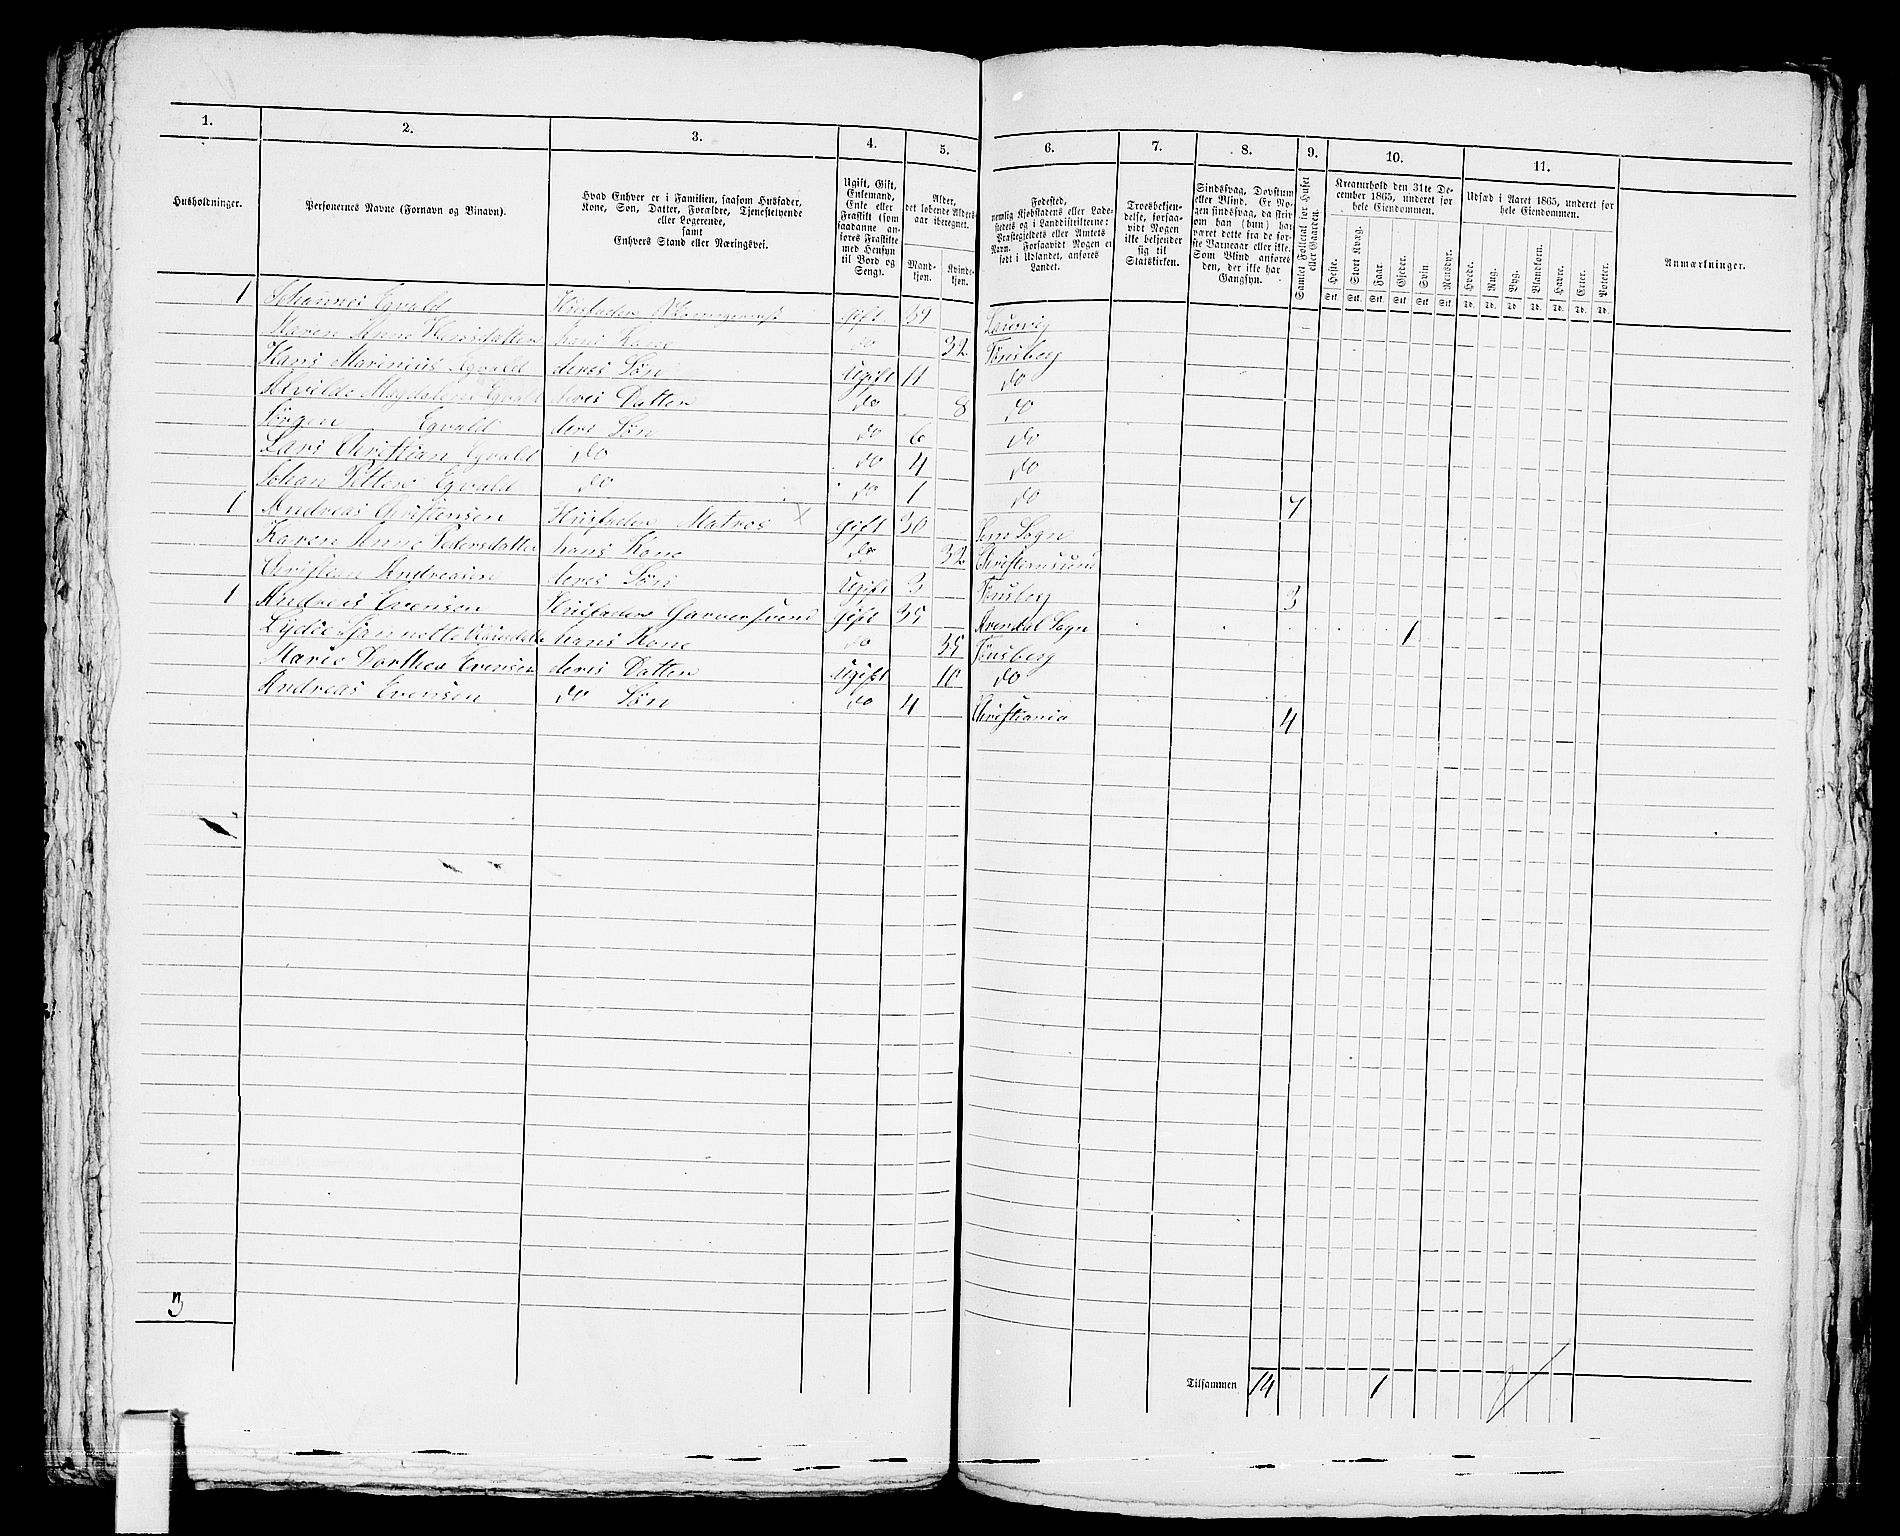 1. 2. 3. 4. 5. 6. 7. 8. 9. 10. 11.
Husholdninger.
Personernes Navne (Fornavn og Binavn).
Hvad Enhver er i Familien, saasom Husfader,
Kone, Søn, Datter, Forældre, Tjenestetyende
eller Logerende,
samt
Enhvers Stand eller Næringsvei.
Ugift, Gift,
Enkemand,
Enke eller
Fraskilt (som
saadanne an-
føres Fraskilte
med Hensyn
til Bord og
Seng).
Alder,
det løbende Alders-
aar iberegnet.
Mand-
kjøn.
Kvinde-
kjøn.
Fødested,
nemlig Kjøbstadens eller Lade-
stedets og i Landdistrikterne:
Præstegjeldets eller Amtets
Navn. Forsaavidt Nogen er
født i Udlandet, anføres
Landet.
Troesbekjen-
delse, forsaa-
vidt Nogen
ikke bekjender
sig til
Statskirken.
Sindssvag, Døvstum
eller Blind. Er No-
gen sindssvag, da skriv
om han (hun) har
været dette fra de før-
ste Barneaar eller ikke.
Som Blind anføres
den, der ikke har
Gangsyn.
Samlet Folketal for Huset
eller Gaarden.
Kreaturhold den 31te De-
cember 1865, underet for
hele Eiendommen.
Heste. Stort Kvæg. Faar. Gjeder. Svin. Rensdyr.
Stk. Stk. Stk. Stk. Stk. Stk.
Udsæd i Aaret 1865, underet for
hele Eiendommen.
Hvede. Rug. Byg. Blandkorn. Havre. Erter. Poteter.
Td. Td. Td. Td. Td. Td. Td.
Anmærkninger.
1 Johannes Egvald Husfader gift 39 Laurvig
Maren Anne Hansdatter hans Kone do 32 Tønsberg
Hans Marinius Egvald deres Søn Ugift 11 do
Magdalene Egvald deres Datter do 8 do
Jørgen Egvald deres Søn do 6 do
Lars Christian Egvald do do 4 do
Johan Petter Egvald do do 1 do 7
1 Andreas Christensen Husfader Matros X gift 30 Sem Sogn
Karen Anne Pedersdatter hans Kone do 32 Christiansund
Christian Andreasen deres Søn Ugift 3 Tønsberg 3
1 Andreas Evensen Husfader Garversvend gift 35 Arendal Sogn 1
hans Kone do 35 Tønsberg
Marie Dorthea Evensen deres Datter Ugift 10 do
Andreas Evensen do Søn do 4 Christiania 4
3
Tilsammen 14 1